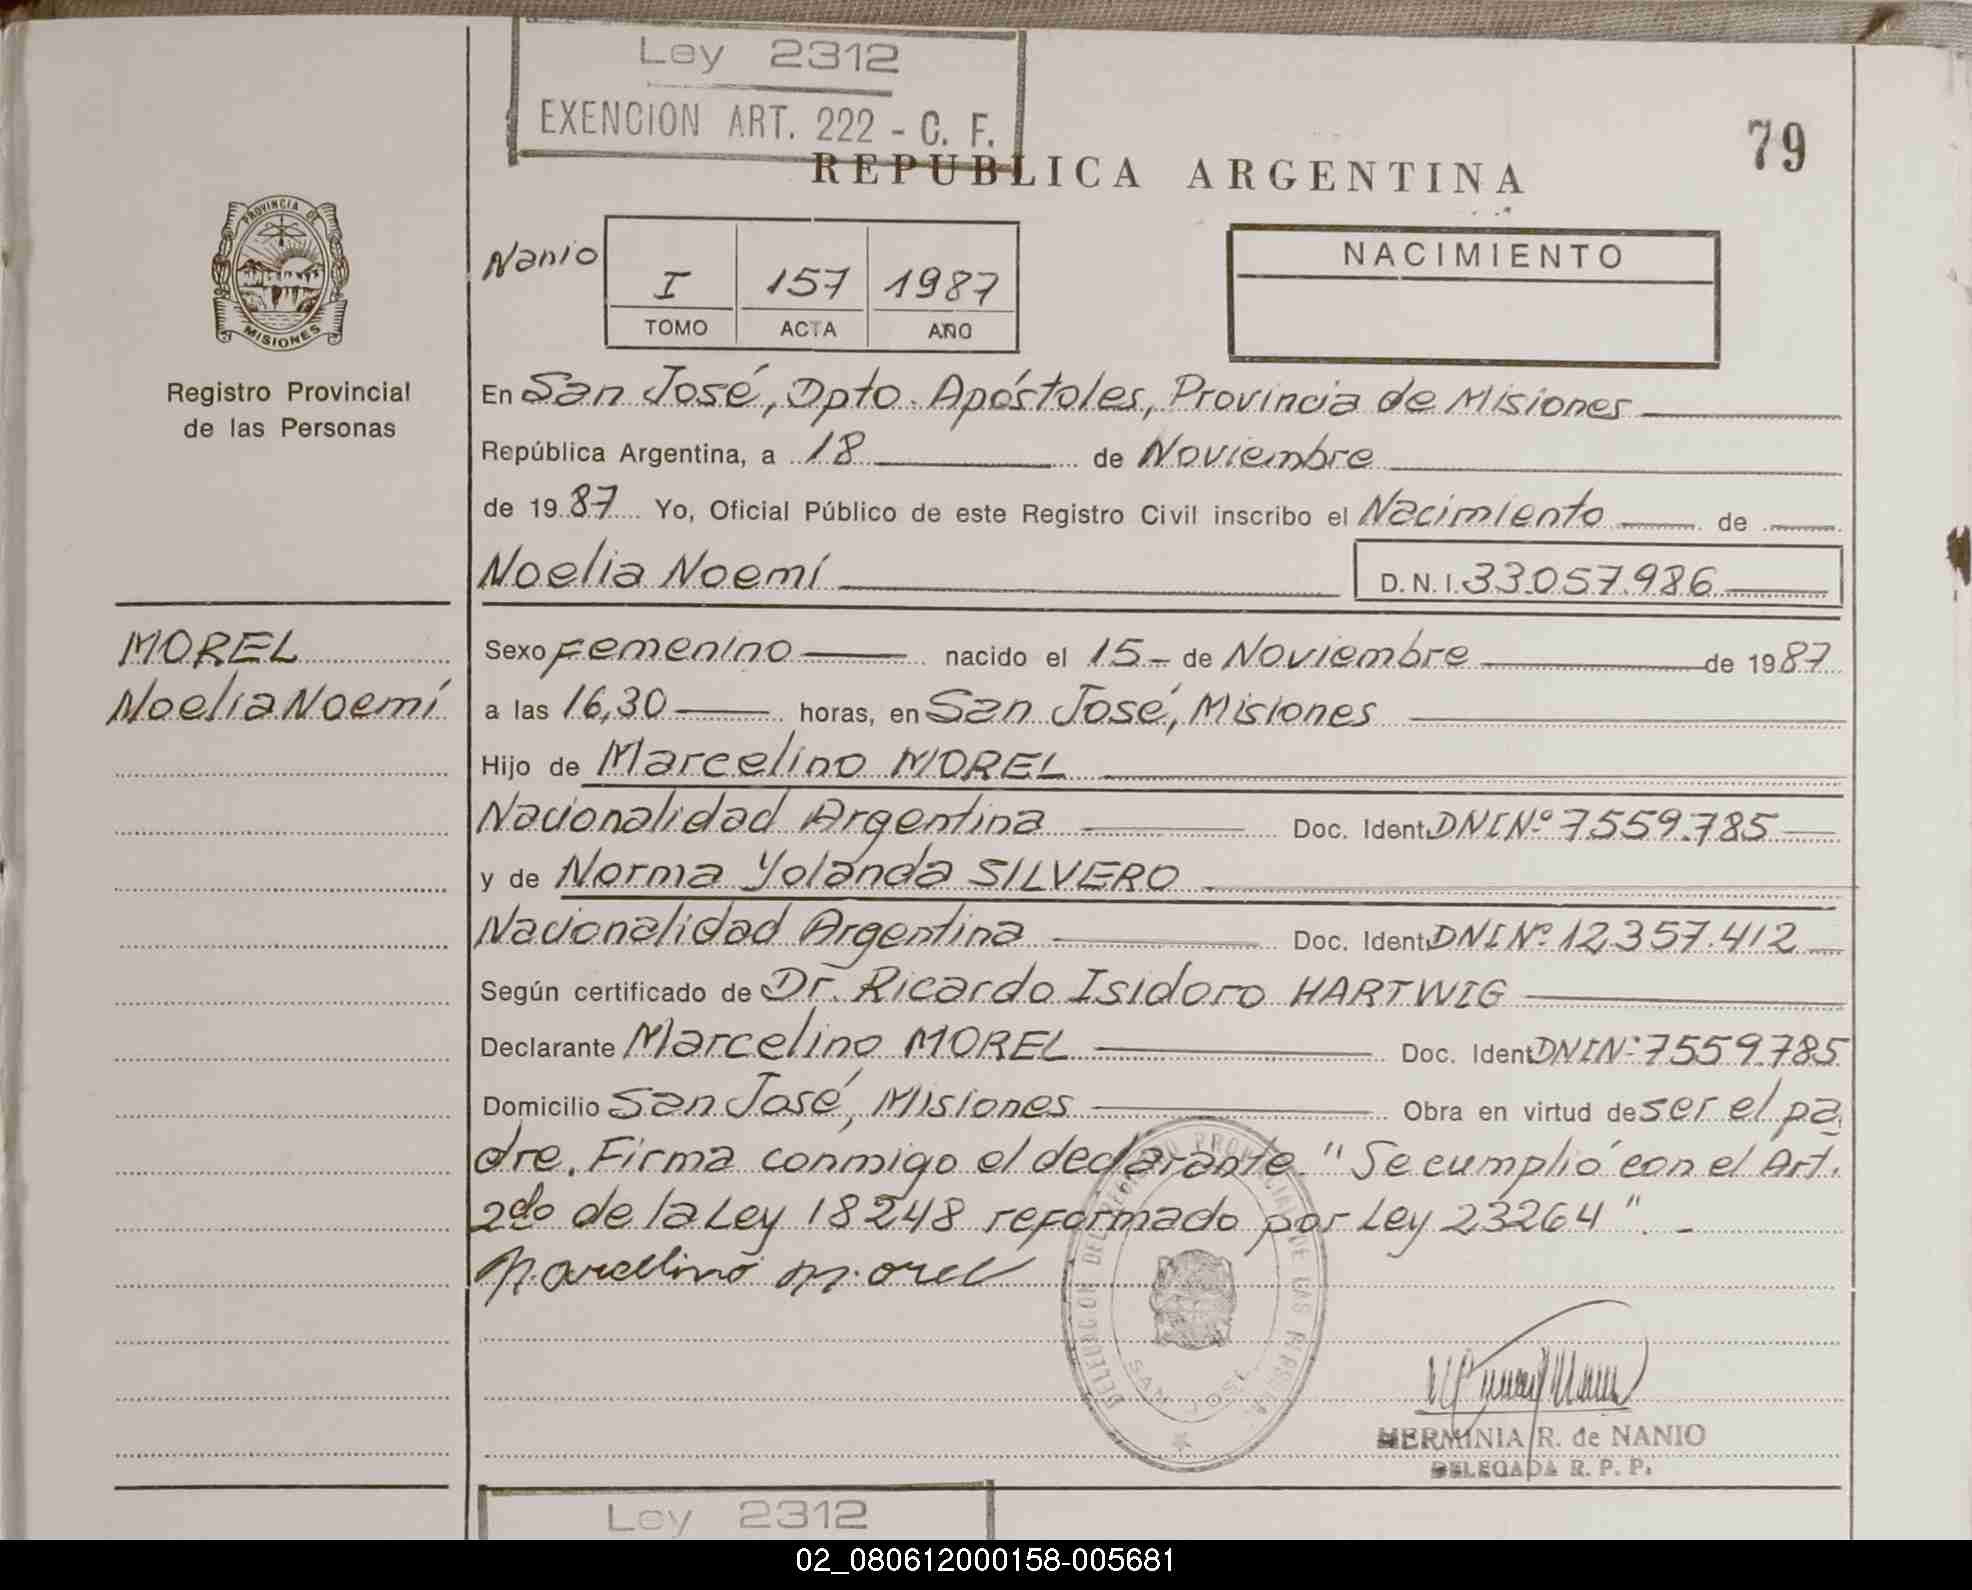 Ley 2312
EXENCION ART. 222 - C. F.
79
REPUBLICA ARGENTINA
PROVINCIA DE
MISIONES
Registro Provincial
de las Personas
Nanio
I 157 1987
TOMO ACTA AÑO
NACIMIENTO
En San José, Dpto. Apóstoles, Provincia de Misiones
República Argentina, a 18 de Noviembre
de 1987 Yo, Oficial Público de este Registro Civil inscribo el Nacimiento de
Noelia Noemí D.N.I. 33.057.986
MOREL
Noelia Noemí
Sexo Femenino nacido el 15- de Noviembre de 1987
a las 16,30 horas, en San José, Misiones
Hijo de Marcelino MOREL
Nacionalidad Argentina Doc. Ident. DNI Nº 7.559.785
y de Norma Yolanda SILVERO
Nacionalidad Argentina Doc. Ident. DNI Nº 12.357.412
Según certificado de Dr. Ricardo Isidoro HARTWIG
Declarante Marcelino MOREL Doc. Ident. DNI Nº 7.559.785
Domicilio San José, Misiones Obra en virtud de ser el pa
dre. Firma conmigo el declarante. "Se cumplió con el Art.
2do de la Ley 18248 reformado por Ley 23264". -
Marcelino Morel
SAN JOSE
HERMINIA R. de NANIO
DELEGADA R. P. P.
Ley 2312
02_080612000158-005681